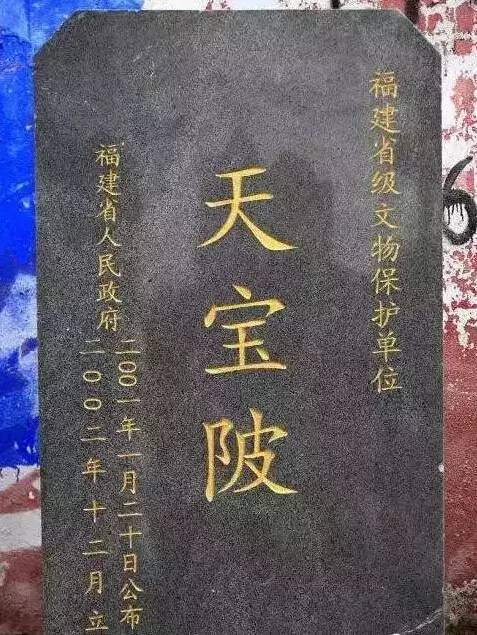 福建省级文物保护单位
天宝陂
福建省人民政府
二00一年一月二十日公布
二00二年十二月立